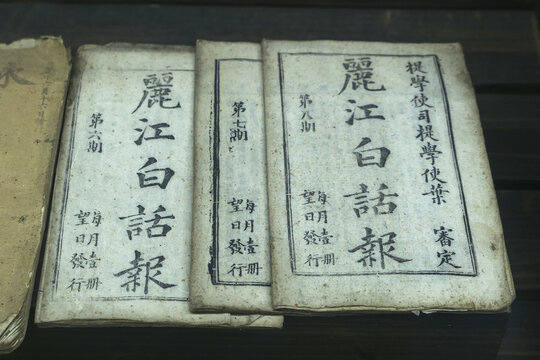 提學使司提學使葉 審定
麗江白話報
第八期
每月壹册
望日發行
第七期
每月壹册
望日發行
麗江白話報
第六期
每月壹册
望日發行